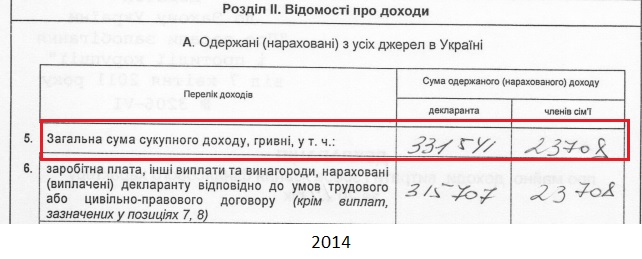 Розділ II. Відомості про доходи
А. Одержані (нараховані) з усіх джерел в Україні
Перелік доходів
Сума одержаного (нарахованого) доходу
декларанта
членів сім'ї
5. Загальна сума сукупного доходу, гривні, у т. ч.: 331541 23708
6. заробітна плата, інші виплати та винагороди, нараховані
(виплачені) декларанту відповідно до умов трудового
або цивільно-правового договору (крім виплат,
зазначених у позиціях 7, 8) 315707 23708
2014